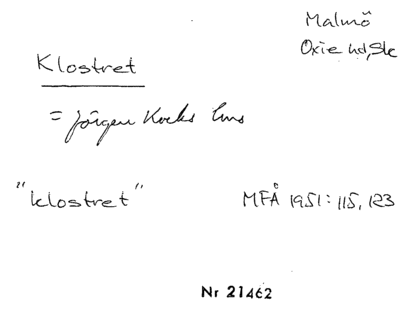 Malmö
Oxie hd, Sk
Klostret
= Jörgen Kocks hus
"klostret"
MFÅ 1951: 115, 123
Nr 21462